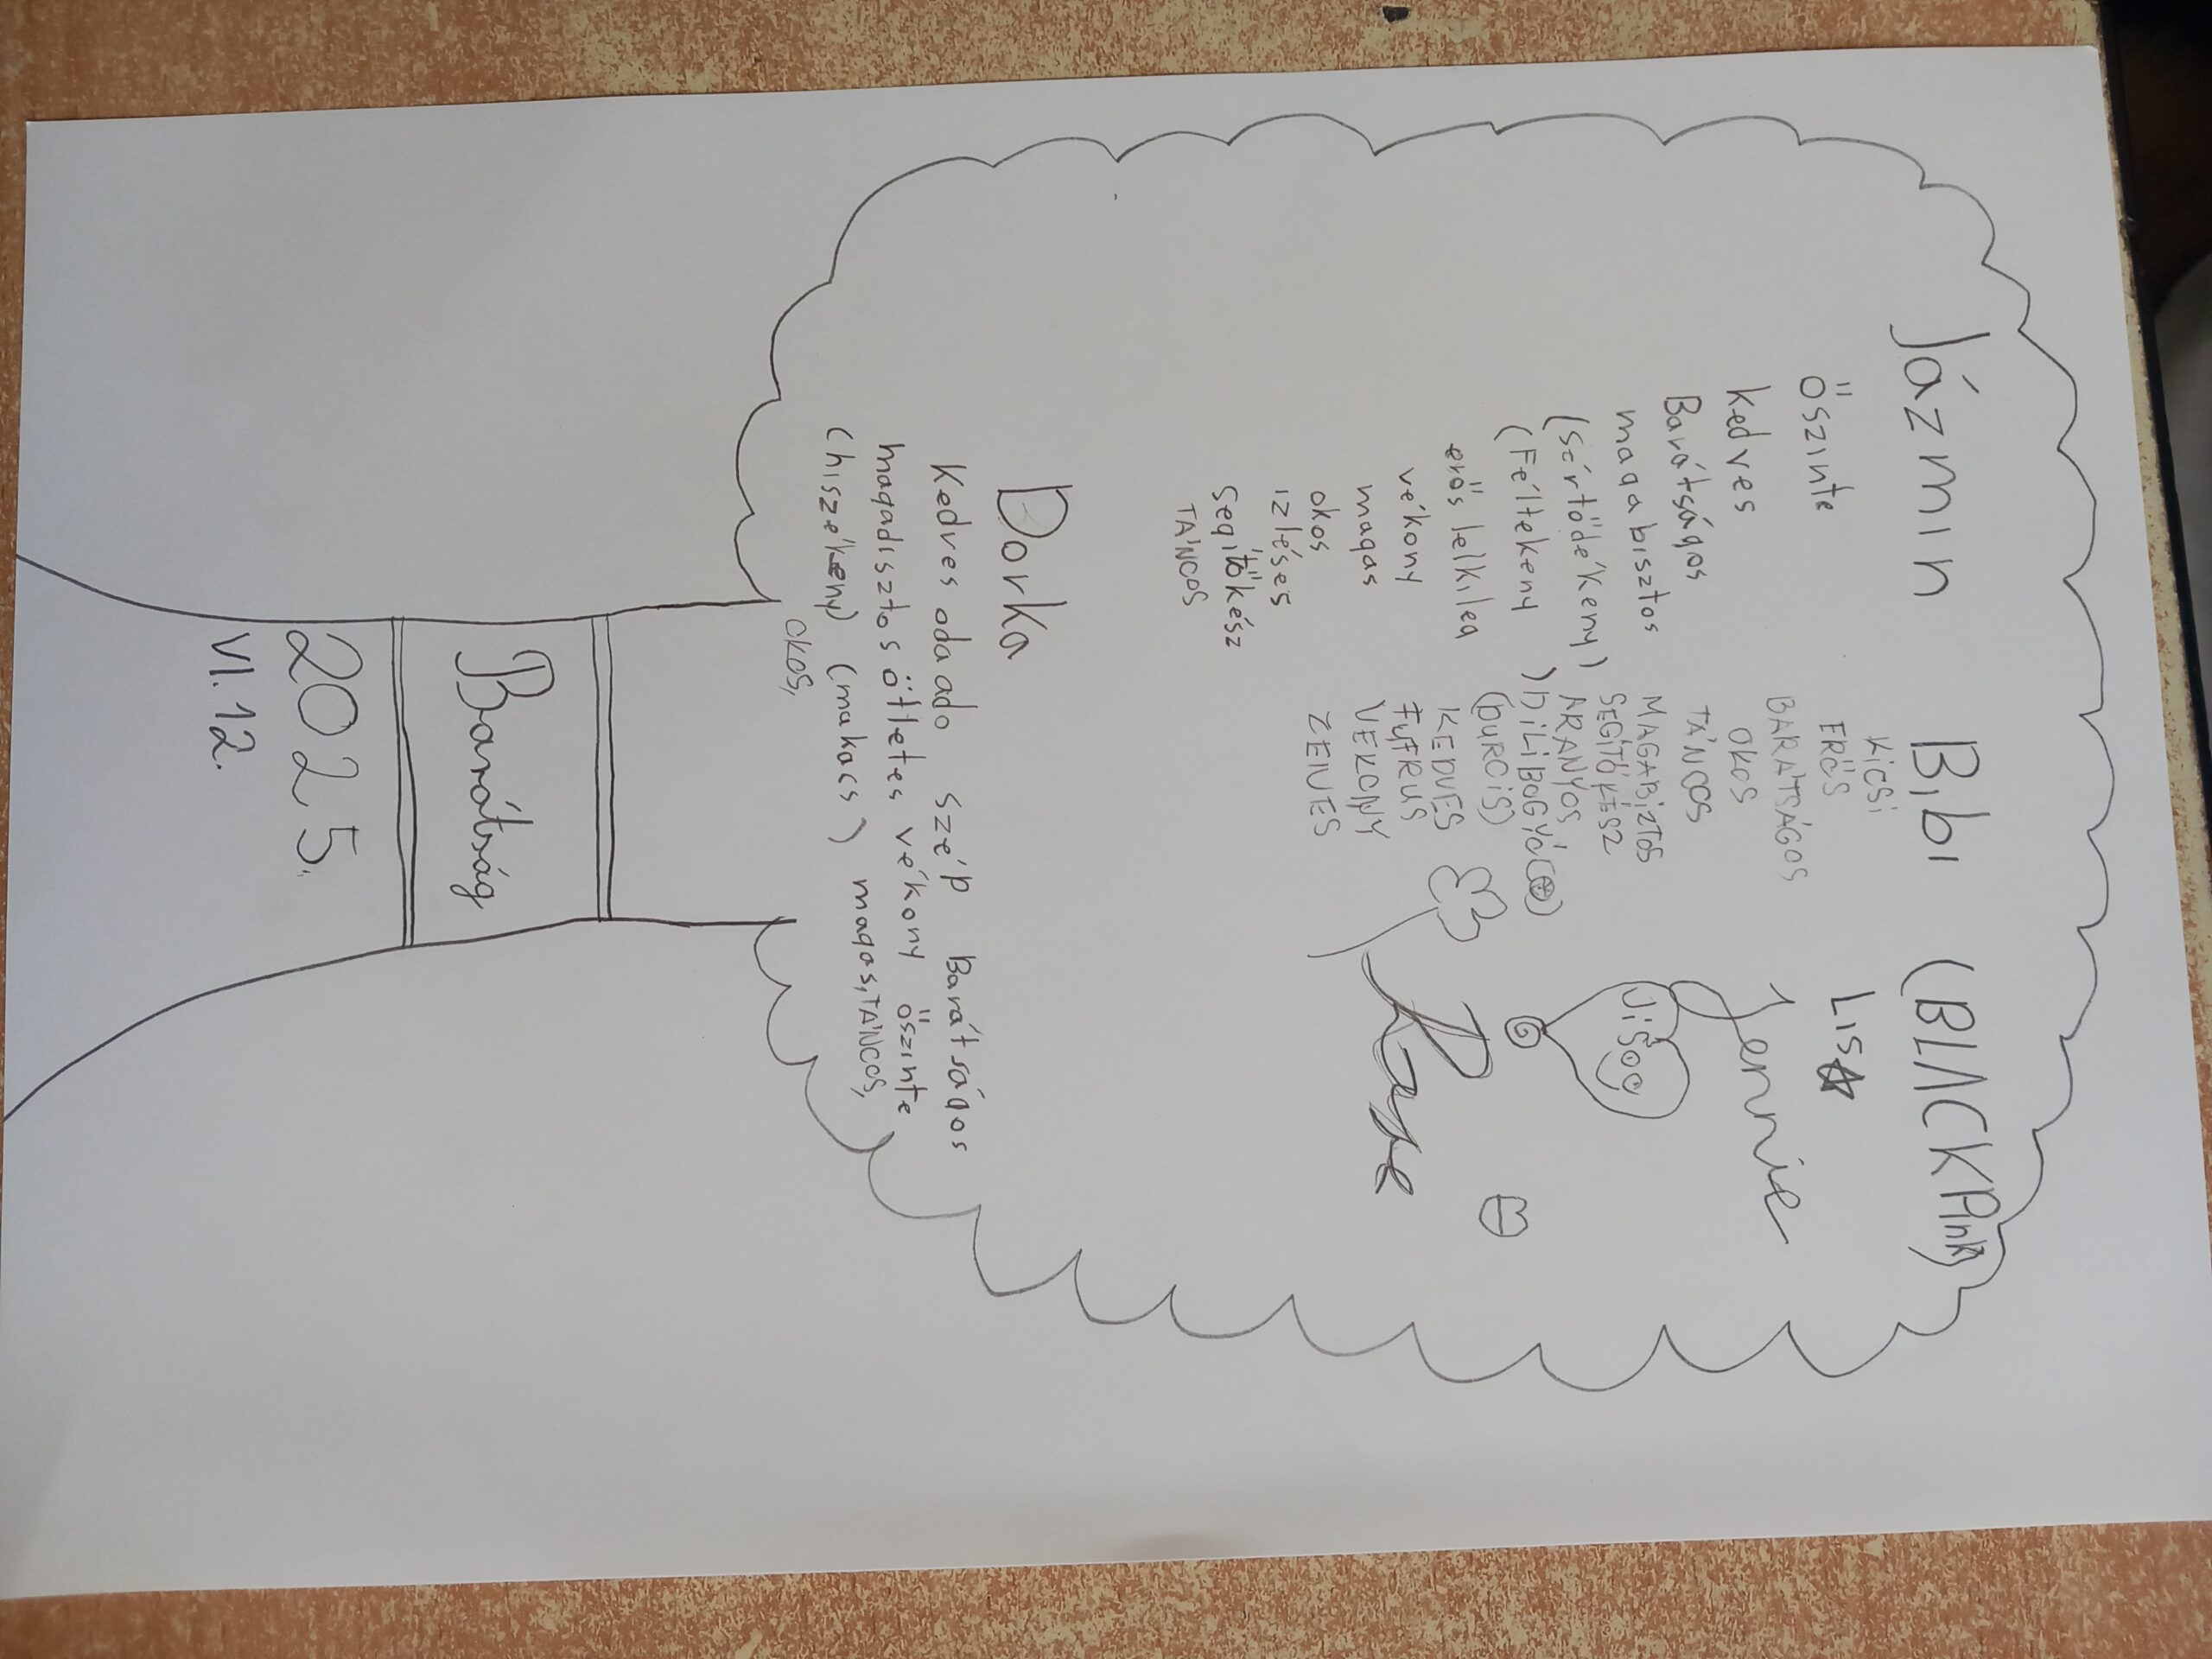 Jázmin
őszinte
kedves
Barátságos
magabisztos
(sértődékeny)
(Féltekeny )
erős lelkileg
vékony
magas
okos
izléses
segitőkész
TÁNCOS
Bibi
KiCSi
ERŐS
BARÁTSÁGOS
OKOS
TÁNCOS
MAGABiZTOS
SEGÍTŐKÉSZ
ARANYOS
DiLiBOGYÓ
(DURCiS)
KEDVES
FUFRUS
VÉKONY
ZENÉS
(BLACKPink)
LISA
Jennie
JiSoo
Rose
Dorka
Kedves odaado szép Barátságos
magadisztos ötletes vékony őszinte
(hiszékeny) (makacs) magas, TÁNCOS,
OKOS,
Barátság
2025.
VI. 12.